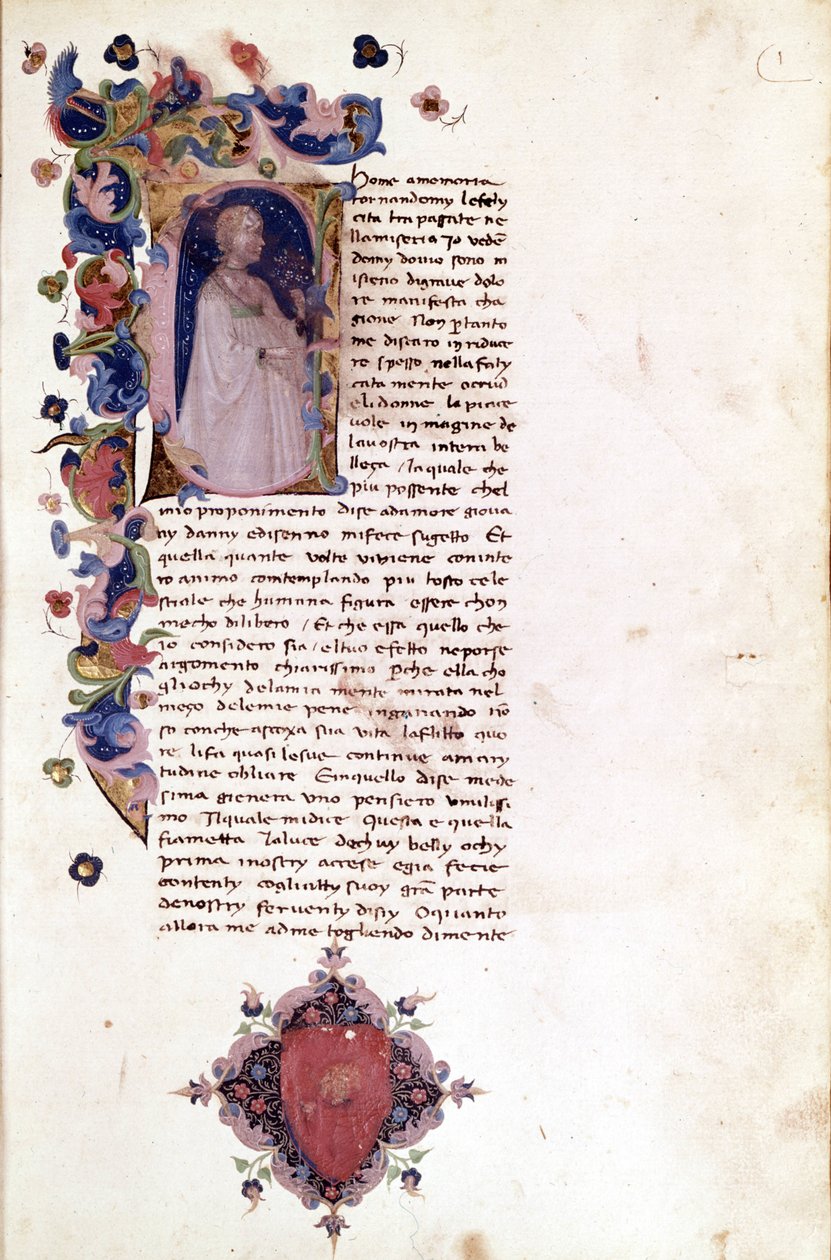 1
C
home amemoria
tornandomy lefely
cita tra pagate ne
llamiseria Io veden̄
domy dovio sono m
isieno digrave dolo
re manifesta cha
gione Non ꝑtanto
me discaro in riduce
re spesso nella faty
cata mente o crud
eli donne la piace
vole in magine de
lavostra intera be
lleça / laquale che
piu possente chel
mio proponimento dise adamore giova
ny danny edisenno mifece sugetto Et
quella quante volte viviene coninte
ro animo comtemplando piu tosto cele
stiale che humana figura essere chon
mecho dilibero / Et che essa quello che
io considero sia / eltuo efetto neporse
argomento chiarissimo ꝑche ella cho
gliochy delamia mente mirata nel
meço delemie pene ingannando nō
so conche ascoxa sua vita laflitto quo
re lifa quasi lesue continue amary
tudine obliare Einquello dise mede
sima gienera uno pensiero umilissi
mo Ilquale midice Questa e quella
fiametta Laluce dechuy belly ochy
prima inostry accese egia fecie
contenty cogliatty suoy grā parte
denostry ferventy disiy Oquanto
allora me adme togliendo dimente